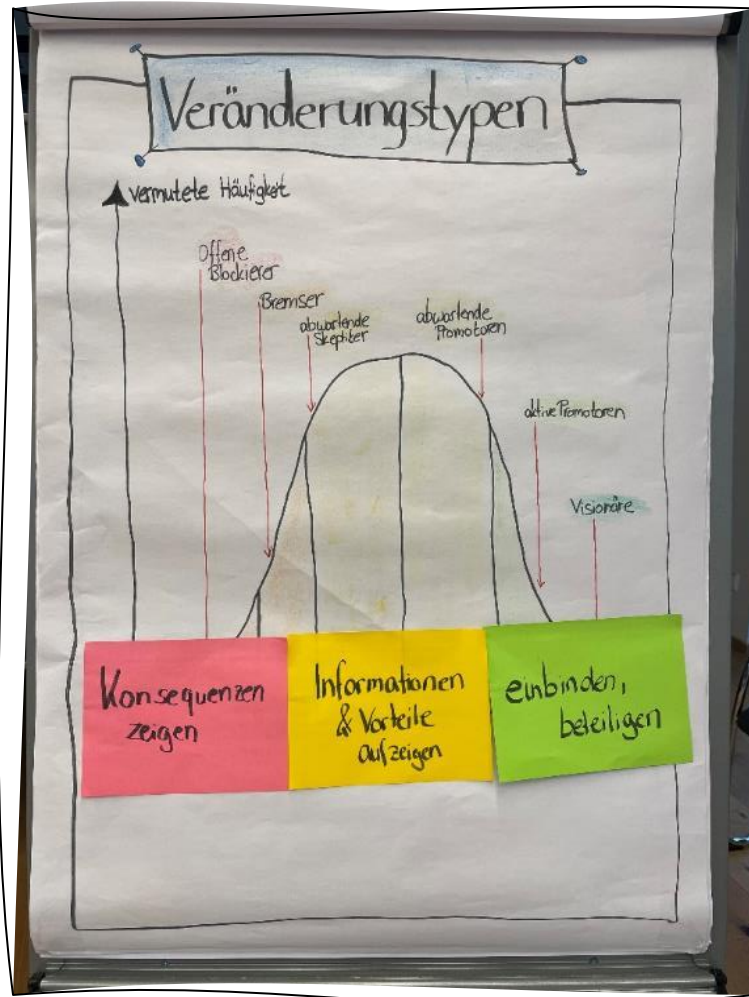 Veränderungstypen
vermutete Häufigkeit
Offene
Blockierer
Bremser
abwartende
Skeptiker
abwartende
Promotoren
aktive Promotoren
Visionäre
Konsequenzen
zeigen
Informationen
& Vorteile
aufzeigen
einbinden,
beteiligen